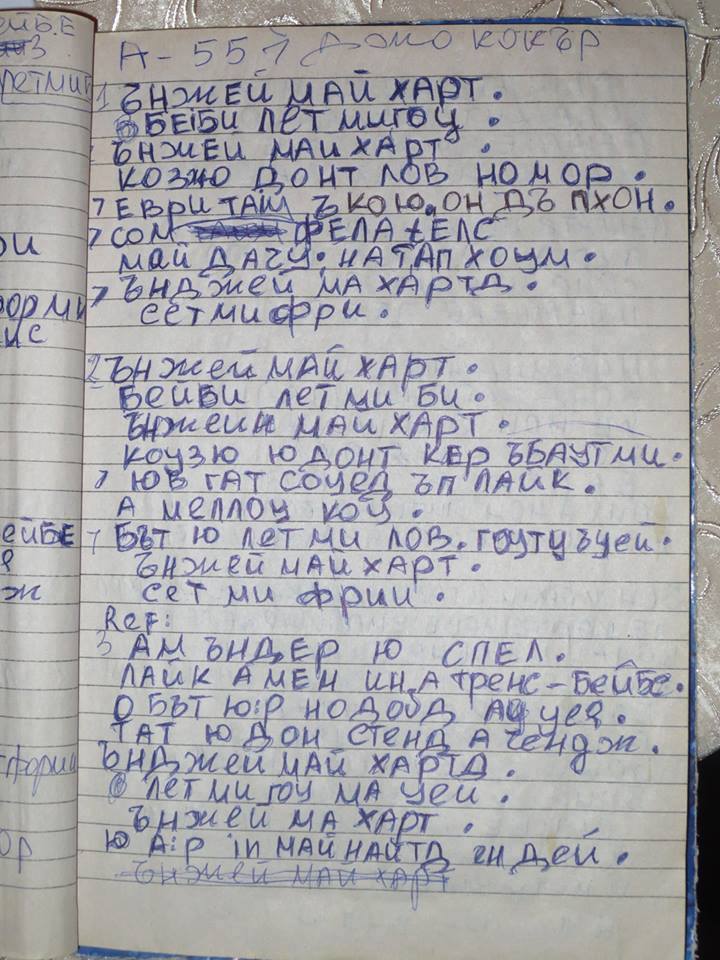 А-551 ДЖО КОКЪР
1 ЪНЖЕЙ МАЙ ХАРТ.
БЕЙБИ ЛЕТ МИ ГОЦ.
ЪНЖЕЙ МАЙ ХАРТ.
КОЗЮ ДОНТ ЛОВ НО МОР.
7 ЕВРИ ТАЙМ Ъ КОЮ.ОН ДЪ ПХОН.
7 СОМ ФЕЛА ЕЛС
МАЙ ДАЧУ.НА ТАП ХОУМ.
7 ЪНДЖЕЙ МА ХАРТД.
СЕТ МИ ФРИ.
2 ЪНЖЕЙ МАЙ ХАРТ.
БЕЙБИ ЛЕТ МИ БИ.
ЪНЖЕЙН МАЙ ХАРТ.
КОУЗЮ ЮДОНТ КЕР ЪБАУТ МИ.
7 ЮВ ГАТ СОЦЕД ЪП ЛАЙК.
А МЕЛЛОЦ КОЦ.
7 БЪТ Ю ЛЕТ МИ ЛОВ.ГОУТУ ЪЦЕЙ.
ЪНЖЕЙ МАЙ ХАРТ.
СЕТ МИ ФРИИ.
Ref:
3 АМ ЪНДЕР Ю СПЕЛ.
ЛАЙК А МЕН ИН А ТРЕНС-БЕЙБЕ.
О БЪТ Ю:Р НО ДОБД
ТАТ Ю ДОН СТЕНД А ЧЕНДЖ.
ЪНДЖЕЙ МАЙ ХАРТД.
ЛЕТ МИ ГОЦ МА ЦЕЙ.
ЪНЖЕЙ МА ХАРТ.
Ю А:Р in МАЙ НАЙТД ЕНДЕЙ.
ЪНЖЕЙ МАЙ ХАРТ